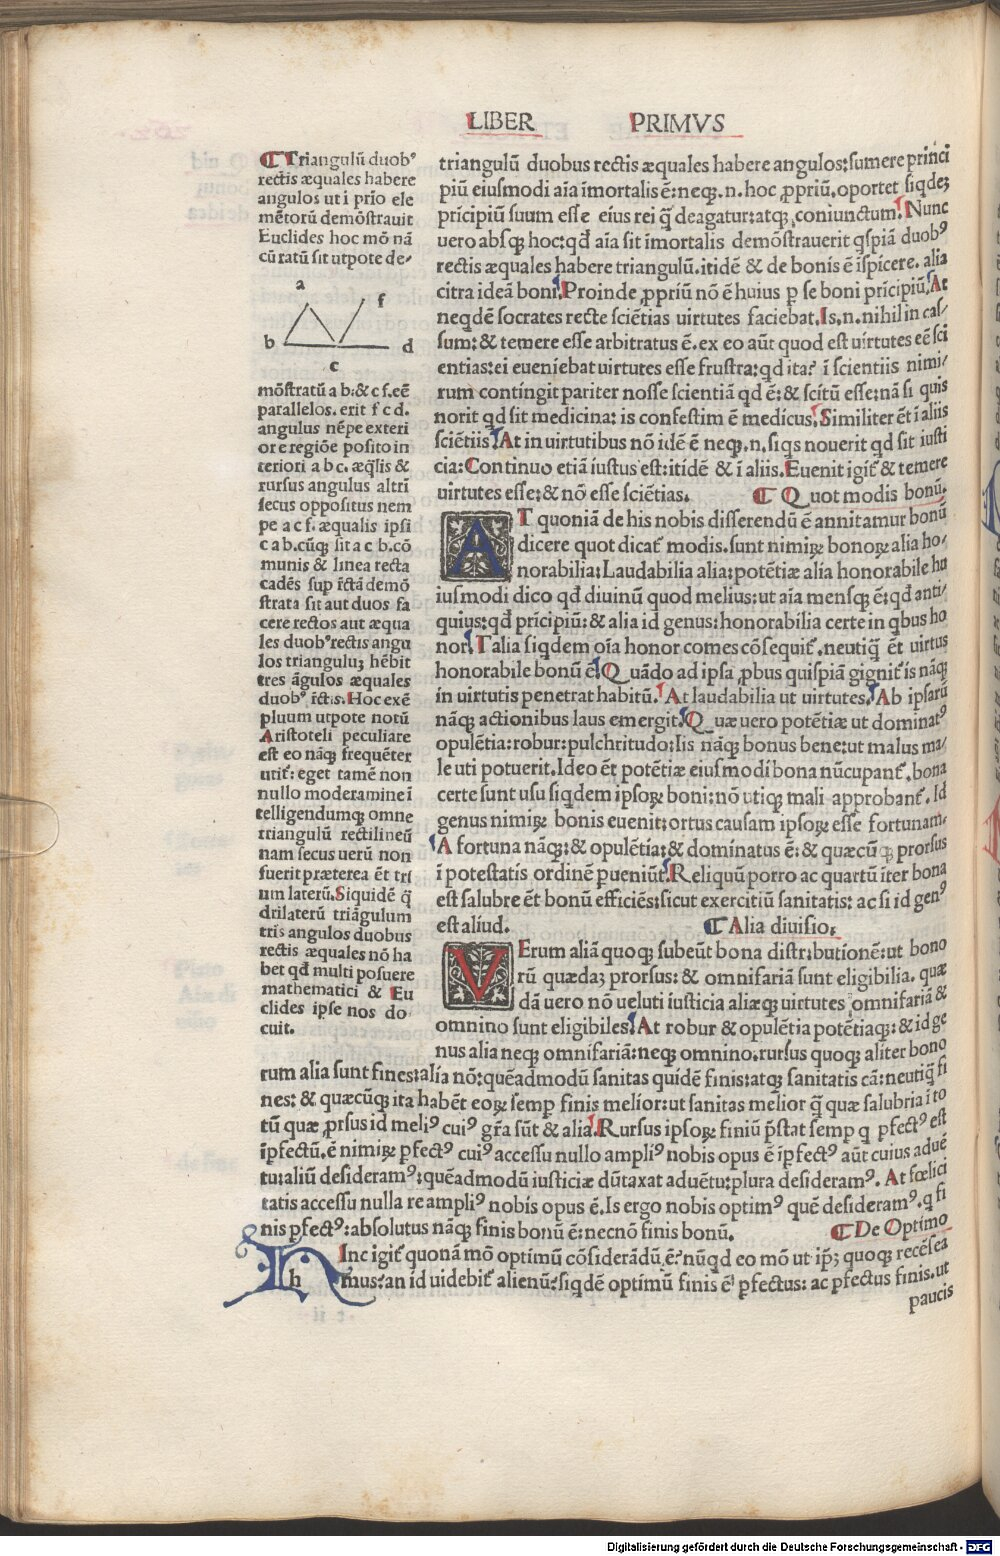 LIBER PRIMVS
⸿ Triangulū duobꝰ
rectis æquales habere
angulos ut i prīo ele
mētorū demōstrauit
Euclides hoc mō nā
cū ratū sit utpote de-
a
f
b
d
c
mōstratū a b:& c f.eē
parallelos. erit f c d.
angulus nēpe exteri
or e regiōe posito in
teriori a b c. æq̄lis &
rursus angulus altri
secus oppositus nem
pe a c f. æqualis ipsi
c a b.cūqꝫ sit a c b.cō
munis & linea recta
cadēs sup īctā demō
strata sit aut duos fa
cere rectos aut æqua
les duobꝰ rectis angu
los trianguluꝫ hēbit
tres āgulos æquales
duobꝰ īctis. Hoc exē
pluum utpote notū
Aristoteli peculiare
est eo nāqꝫ frequēter
utit᷑: eget tamē non
nullo moderamine ī
telligendumqꝫ omne
triangulū rectilineū
nam secus uerū non
fuerit præterea ēt tri
um laterū. Siquidē q̄
drilaterū triāgulum
tris angulos duobus
rectis æquales nō ha
bet qd̄ multi posuere
mathematici & Eu
clides ipse nos do
cuit.
triangulū duobus rectis æquales habere angulos: sumere princi
piū eiusmodi aīa īmortalis ē: neqꝫ.n. hoc ꝓpriū. oportet siqdeꝫ
prīcipiū suum esse eius rei q̄ deagatur: atqꝫ coniunctum. Nunc
uero absqꝫ hoc: qd̄ aīa sit imortalis demōstrauerit qspiā duobꝰ
rectis æquales habere triangulū. itidē & de bonis ē īspicere. alia
citra ideā boni. Proinde ꝓpriū nō ē huius p se boni prīcipiū. At
neqdē socrates recte sciētias uirtutes faciebat. Is.n. nihil in cas-
sum: & temere esse arbitratus ē. ex eo aūt quod est uirtutes eē sci
entias: ei eueniebat uirtutes esse frustra: qd ita? ī scientiis nimi-
rum contingit pariter nosse scientiā qd ē: & scitū esse: nā si quis
norit qd sit medicina: is confestim ē medicus. Similiter ēt ī aliis
sciētiis. At in uirtutibus nō idē ē neqꝫ.n. siqs nouerit qd sit iusti
cia: Continuo etiā iustus est: itidē & ī aliis. Euenit igit᷑ & temere
uirtutes esse: & nō esse sciētias. ⸿ Quot modis bonū.
AT quoniā de his nobis disserendū ē annitamur bonū
dicere quot dicat᷑ modis. sunt nimirꝝ bonorꝝ alia ho-
norabilia: Laudabilia alia: potētiæ alia honorabile hu
iusmodi dico qd̄ diuinū quod melius: ut aīa mensqꝫ ē: qd anti-
quius: qd̄ prīcipiū: & alia id genus: honorabilia certe in qbus ho
nor. Talia siqdem oīa honor comes cōsequit᷑. neutiq̄ ēt uirtus
honorabile bonū ē. Quādo ad ipsa ꝓbus quispiā gignit᷑ is nāqꝫ
in uirtutis penetrat habitū. At laudabilia ut uirtutes. Ab ipsarū
nāqꝫ actionibus laus emergit. Quæ uero potētiæ ut dominatꝰ
opulētia: robur: pulchritudo: Iis nāqꝫ bonus bene: ut malus ma-
le uti potuerit. Ideo ēt potētiæ eiusmodi bona nūcupant᷑. bona
certe sunt usu siqdem ipsorꝝ boni: nō utiqꝫ mali approbant᷑. Id
genus nimirꝝ bonis euenit: ortus causam ipsorꝝ esse fortunam.
A fortuna nāqꝫ: & opulētia: & dominatus ē: & quæcūqꝫ prorsus
ī potestatis ordinē pueniūt. Reliquū porro ac quartū iter bona
est salubre ēt bonū efficiēs: sicut exercitiū sanitatis: ac si id genꝰ
est aliud. ⸿ Alia diuisio.
VErum aliā quoqꝫ subeūt bona distributionē: ut bono
rū quædaꝫ prorsus: & omnifariā sunt eligibilia. quæ
dā uero nō ueluti iusticia aliæqꝫ uirtutes omnifariā &
omnino sunt eligibiles. At robur & opulētia potētiaqꝫ: & id ge
nus alia neqꝫ omnifariā: neqꝫ omnino. rursus quoqꝫ aliter bono
rum alia sunt fines: alia nō: quēadmodū sanitas quidē finis: atqꝫ sanitatis cā: neutiq̄ fi
nes: & quæcūqꝫ ita habēt eorꝝ semp finis melior: ut sanitas melior q̄ quæ salubria ī to
tū quæ ꝓrsus id meliꝰ cuiꝰ gr̄a sūt & alia. Rursus ipsorꝝ finiū p̄stat semp q pfectꝰ est
īpfectū. ē nimirꝝ pfectꝰ cuiꝰ accessu nullo ampliꝰ nobis opus ē ipfectꝰ aūt cuius aduē
tu: aliū desideramꝰ: quēadmodū iusticiæ dūtaxat aduētu: plura desideramꝰ. At fœlici
tatis accessu nulla re ampliꝰ nobis opus ē. Is ergo nobis optimꝰ quē desideramꝰ. q fi
nis pfectꝰ: absolutus nāqꝫ finis bonū ē: necnō finis bonū. ⸿ De Optimo
hInc igit᷑ quonā mō optimū cōsiderādū ē? nūqd eo mō ut ipꝫ quoqꝫ recēsea
mus? an id uidebit᷑ alienū? siqdē optimū finis ē pfectus: ac pfectus finis. ut
paucis
Digitalisierung gefördert durch die Deutsche Forschungsgemeinschaft - DFG